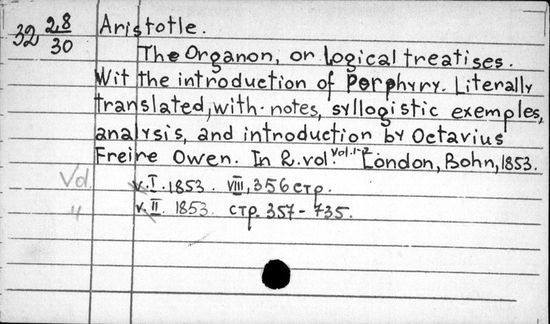 32 28/30 Aristotle.
The Organon, or logical treatises.
Wit the introduction of Porphyry. Literally
translated, with notes, syllogistic exemples,
analysis, and introduction by Octavius
Freire Owen. In 2.vol. Vol.1-2 London, Bohn, 1853.
Vol. v.I. 1853. VIII, 356 стр.
" v.II. 1853. стр. 357-735.